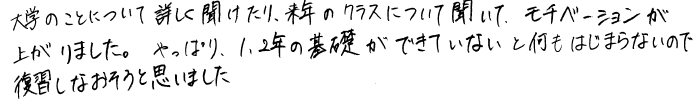 大学のことについて詳しく聞けたり、来年のクラスについて聞いて、モチベーションが
上がりました。やっぱり、1、2年の基礎ができていないと何もはじまらないので
復習しなおそうと思いました